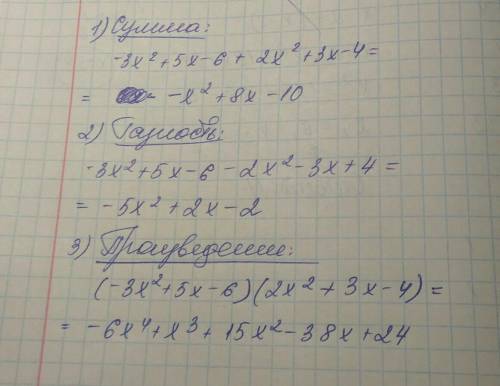 1) Сумма:
-3x²+5x-6+2x²+3x-4=
= -x²+8x-10
2) Разность:
-3x²+5x-6-2x²-3x+4=
= -5x²+2x-2
3) Произведение:
(-3x²+5x-6)(2x²+3x-4)=
= -6x⁴+x³+15x²-38x+24